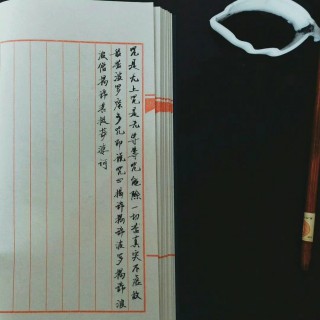 咒是无上咒是无等等咒能除一切苦真实不虚故
般若波罗蜜多咒即说咒曰揭谛揭谛波罗揭谛波
罗僧揭谛菩提萨婆诃